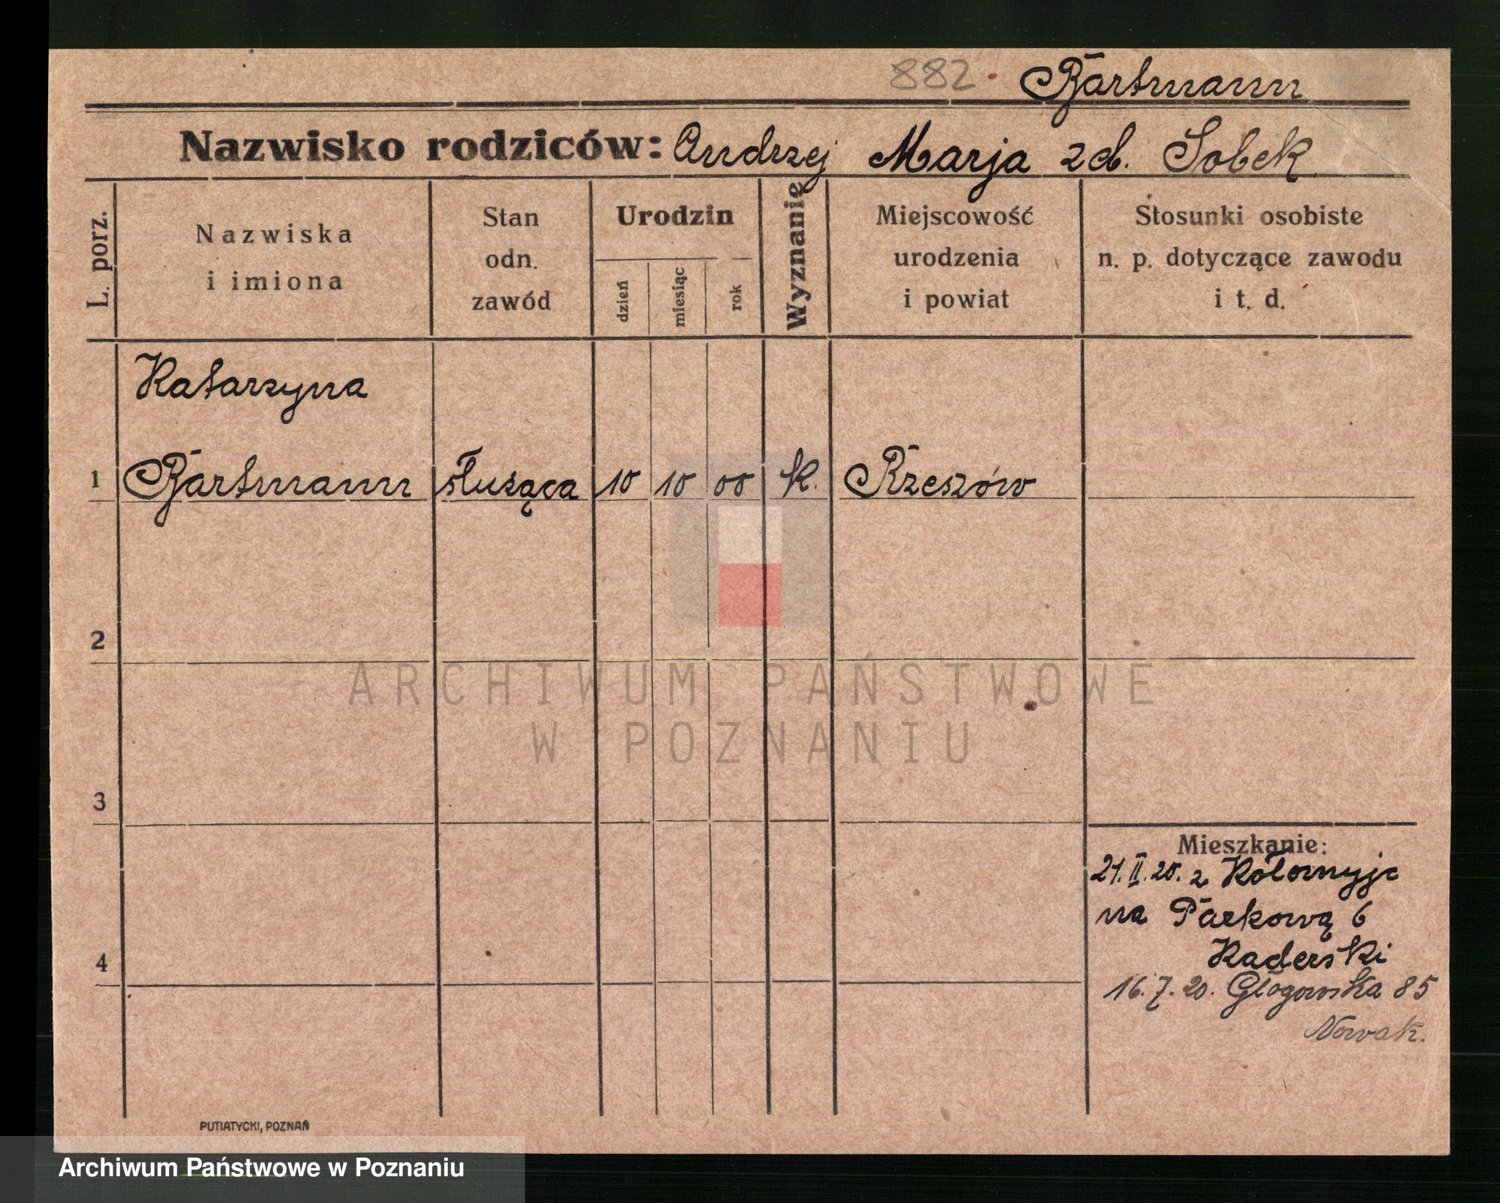 882. Bartmann
Nazwisko rodziców: Andrzej Marja zd. Sobek
L. porz.
Nazwiska
i imiona
Stan
odn.
zawód
Urodzin
dzień
miesiąc
rok
Wyznanie
Miejscowość
urodzenia
i powiat
Stosunki osobiste
n. p. dotyczące zawodu
i t. d.
Katarzyna
1 Bartmann służąca 10 10 00 k. Rzeszów
2
ARCHIWUM PAŃSTWOWE
W POZNANIU
3
Mieszkanie:
21.II.20. z Kołomyje
na Parkową 6
4 Kaderski
16.7.20. Głogowska 85
Nowak.
PUTIATYCKI, POZNAŃ
Archiwum Państwowe w Poznaniu